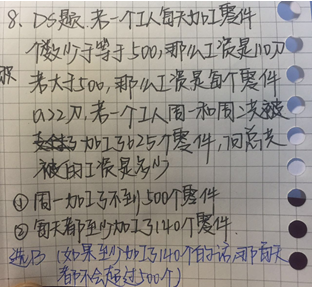 8、DS题. 若一个工人每天加工零件
个数少于等于500,那么工资是110刀
若大于500,那么工资是每个零件
0.22刀. 若一个工人周一和周二
加工了625个零件,问总共
的工资是多少
① 周一加工了不到500个零件
② 每天都至少加工了140个零件.
选B (如果至少加工了140个的话,那每天
都不会超过500个)